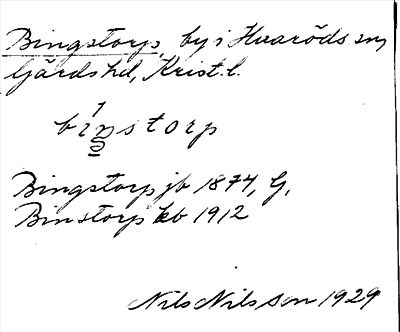 Bingstorp, by i Huaröds sn,
Gärds hd, Krist. l.
binstorp
Bingstorp jb 1874, G,
Binstorp kb 1912
Nils Nilsson 1929